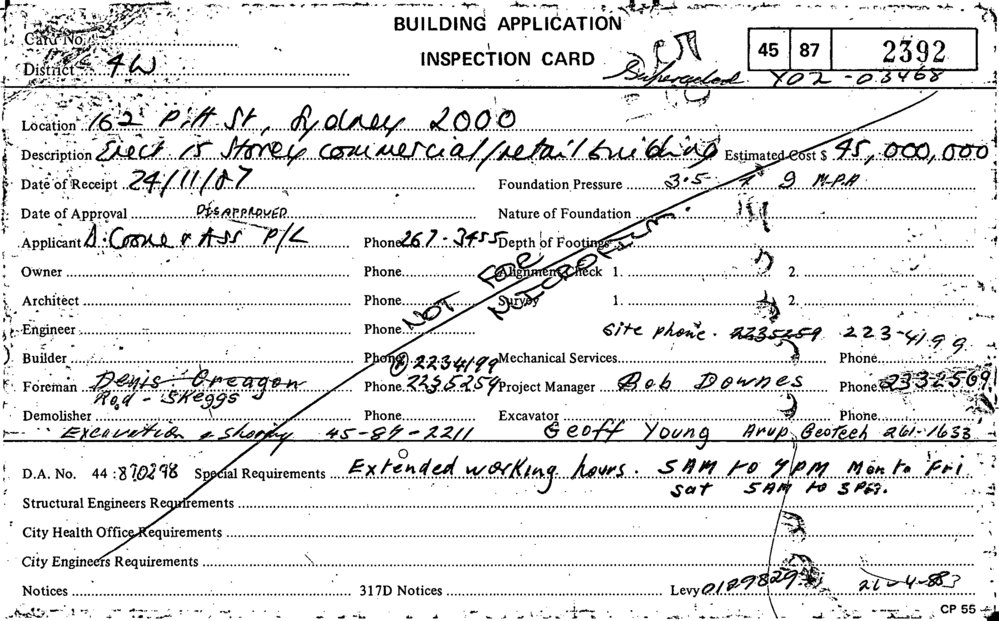 BUILDING APPLICATION
INSPECTION CARD
45 87 2392
Card No.
District 4W
Superceded X02-03468
Location 162 Pitt St, Sydney 2000
Description Erect 15 Storey commercial/retail building Estimated Cost $ 45,000,000
Date of Receipt 24/11/87 Foundation Pressure 3.5 9 MPA
Date of Approval DISAPPROVED Nature of Foundation
Applicant & Ass P/L Phone 267-3455 Depth of Footings
Owner Phone Alignment Check 1. 2.
Architect Phone Survey 1. 2.
NOT FOR MICROFILM.
Engineer Phone Site phone. 2235259 223-4199
Builder Phone 2234199 Mechanical Services Phone
Foreman Denis Creagon Phone 2235259 Project Manager Bob Downes Phone 2332569
Rod - Skeggs
Demolisher Phone Excavator Phone
Excavation & Shoring 45-87-2211 Geoff Young Arup Geotech 261-1633
D.A. No. 44:870298 Special Requirements Extended working hours. 5AM to 7PM Mon to Fri
Sat 5AM to 3PM.
Structural Engineers Requirements
City Health Office Requirements
City Engineers Requirements
Notices 317D Notices Levy 0129829 21-4-883
CP 55